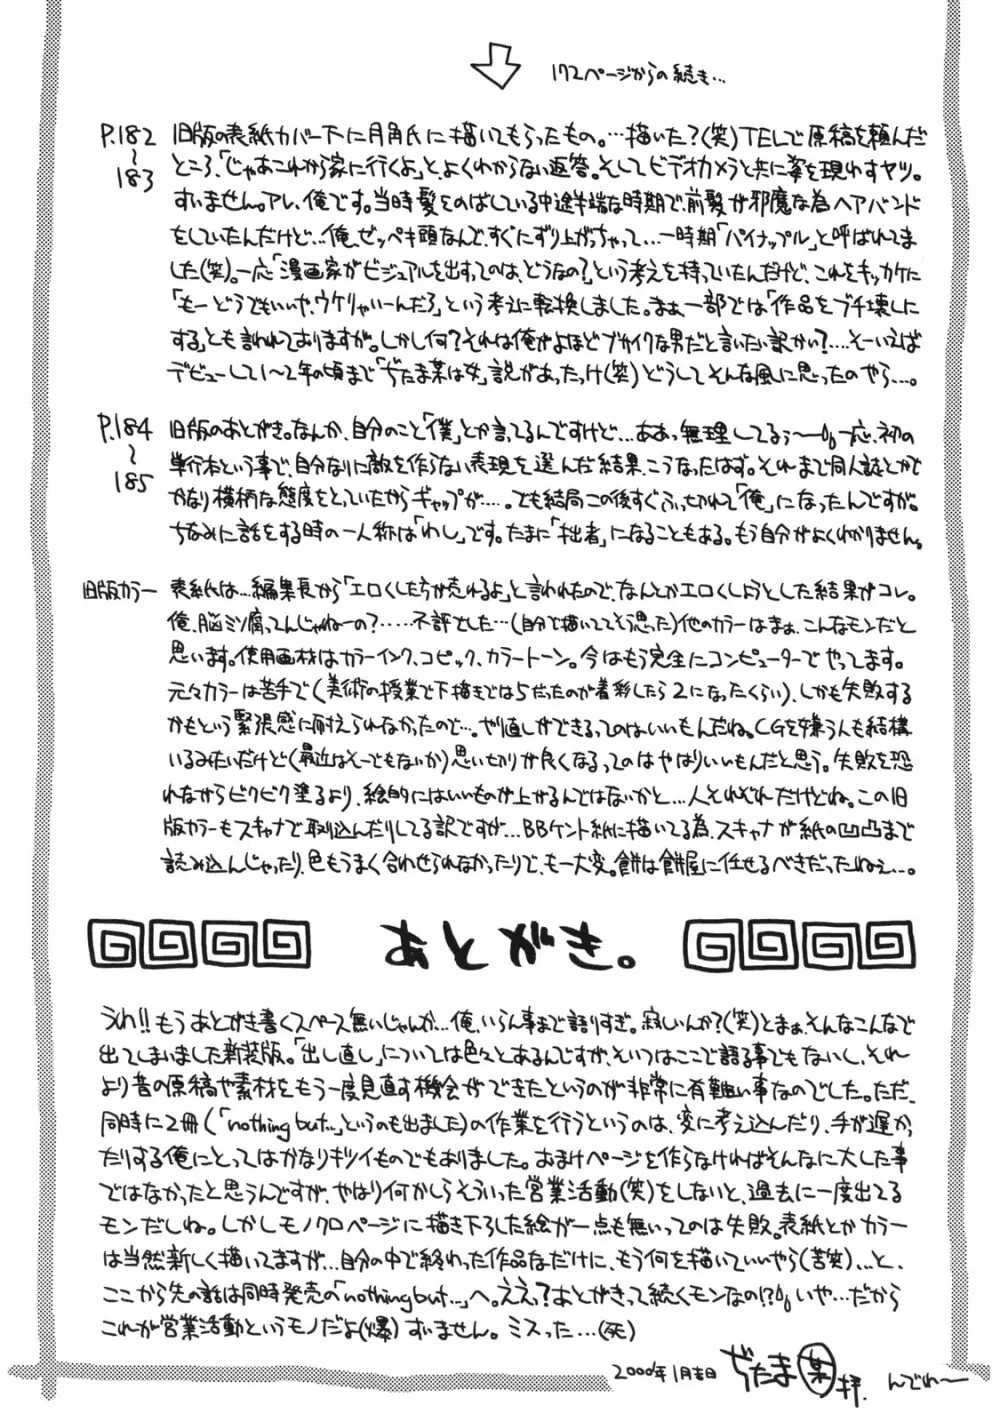 172ページからの続き…
P.182〜183 旧版の表紙カバー下に月角氏に描いてもらったもの。…描いた?(笑)TELで原稿を頼んだ
ところ、「じゃあこれから家に行くよ」と、よくわからない返答。そしてビデオカメラと共に姿を現わすヤツ。
すいません。アレ、俺です。当時髪をのばしている中途半端な時期で、前髪が邪魔な為ヘアバンド
をしていたんだけど…俺、ゼッペキ頭なんで、すぐにずり上がっちゃって…一時期「パイナップル」と呼ばれてま
した(笑)。一応「漫画家がビジュアルを出すってのは、どうなの?」という考えを持っていたんだけど、これをキッカケに
「もーどうでもいいや、ウケりゃいーんだろ」という考えに転換しました。まぁ、一部では「作品をブチ壊しに
する」とも言われておりますが。しかし何?それは俺がよほどブサイクな男だと言いたい訳かい?…そーいえば
デビューして1〜2年の頃まで「ぢたま某は女」説があったっけ(笑)どうしてそんな風に思ったのやら…。
P.184〜185 旧版のあとがき。なんか、自分のこと「僕」とか言ってるんですけど…ああっ無理してるぅ〜一応、初の
単行本という事で、自分なりに敵を作らない表現を選んだ結果、こうなったはず。それまで同人誌とかで
かなり横柄な態度をとっていたからギャップが…。でも結局この後すぐふっきれて「俺」になったんですが。
ちなみに話をする時の一人称は「わし」です。たまに「拙者」になることもある。もう自分がよくわかりません。
旧版カラー 表紙は…編集長から「エロくした方が売れるよ」と言われたので、なんとかエロくしようとした結果がコレ。
俺、脳ミソ腐ってんじゃねーの?……不評でした…(自分で描いててそう思った)他のカラーはまぁ、こんなモンだと
思います。使用画材はカラーインク、コピック、カラートーン。今はもう完全にコンピューターでやってます。
元々カラーは苦手で(美術の授業で下描きでは5だったのが着彩したら2になったくらい)、しかも失敗する
かもという緊張感に耐えられなかったので…。やり直しができるってのはいいもんだね。CGを嫌う人も結構
いるみたいだけど(最近はそーでもないか)思い切りが良くなるってのはやはりいいもんだと思う。失敗を恐
れながらビクビク塗るより、絵的にはいいものが上がるんではないかと…人それぞれだけどね。この旧
版カラーもスキャナで取り込んだりしてる訳ですが…BBケント紙に描いてる為、スキャナが紙の凹凸まで
読み込んじゃったり、色もうまく合わせられなかったりで、もー大変。餅は餅屋に任せるべきだったねぇ…。
あとがき。
うわ!!もうあとがき書くスペース無いじゃんか…俺、いらん事まで語りすぎ。寂しいんか?(笑)とまぁ、そんなこんなで
出てしまいました新装版。「出し直し」については色々とあるんですが、そいつはここで語る事でもないし、それ
より昔の原稿や素材をもう一度見直す機会ができたというのが非常に有難い事なのでした。ただ、
同時に2冊(「nothing but…」というのも出ました)の作業を行うというのは、変に考え込んだり、手が遅かっ
たりする俺にとってはかなりキツイものでもありました。おまけページを作らなければそんなに大した事
ではなかったと思うんですが、やはり何かしらそういった営業活動(笑)をしないと、過去に一度出てる
モンだしね。しかしモノクロページに描き下ろした絵が一点も無いってのは失敗。表紙とかカラー
は当然新しく描いてますが…自分の中で終わった作品なだけに、もう何を描いていいやら(苦笑)…と、
ここから先の話は同時発売の「nothing but…」へ。ええ?あとがきって続くモンなの!?いや…だから
これが営業活動というモノだよ(爆)すいません。ミスった…(死)
2000年1月吉日 ぢたま(某)拝. んでわ〜